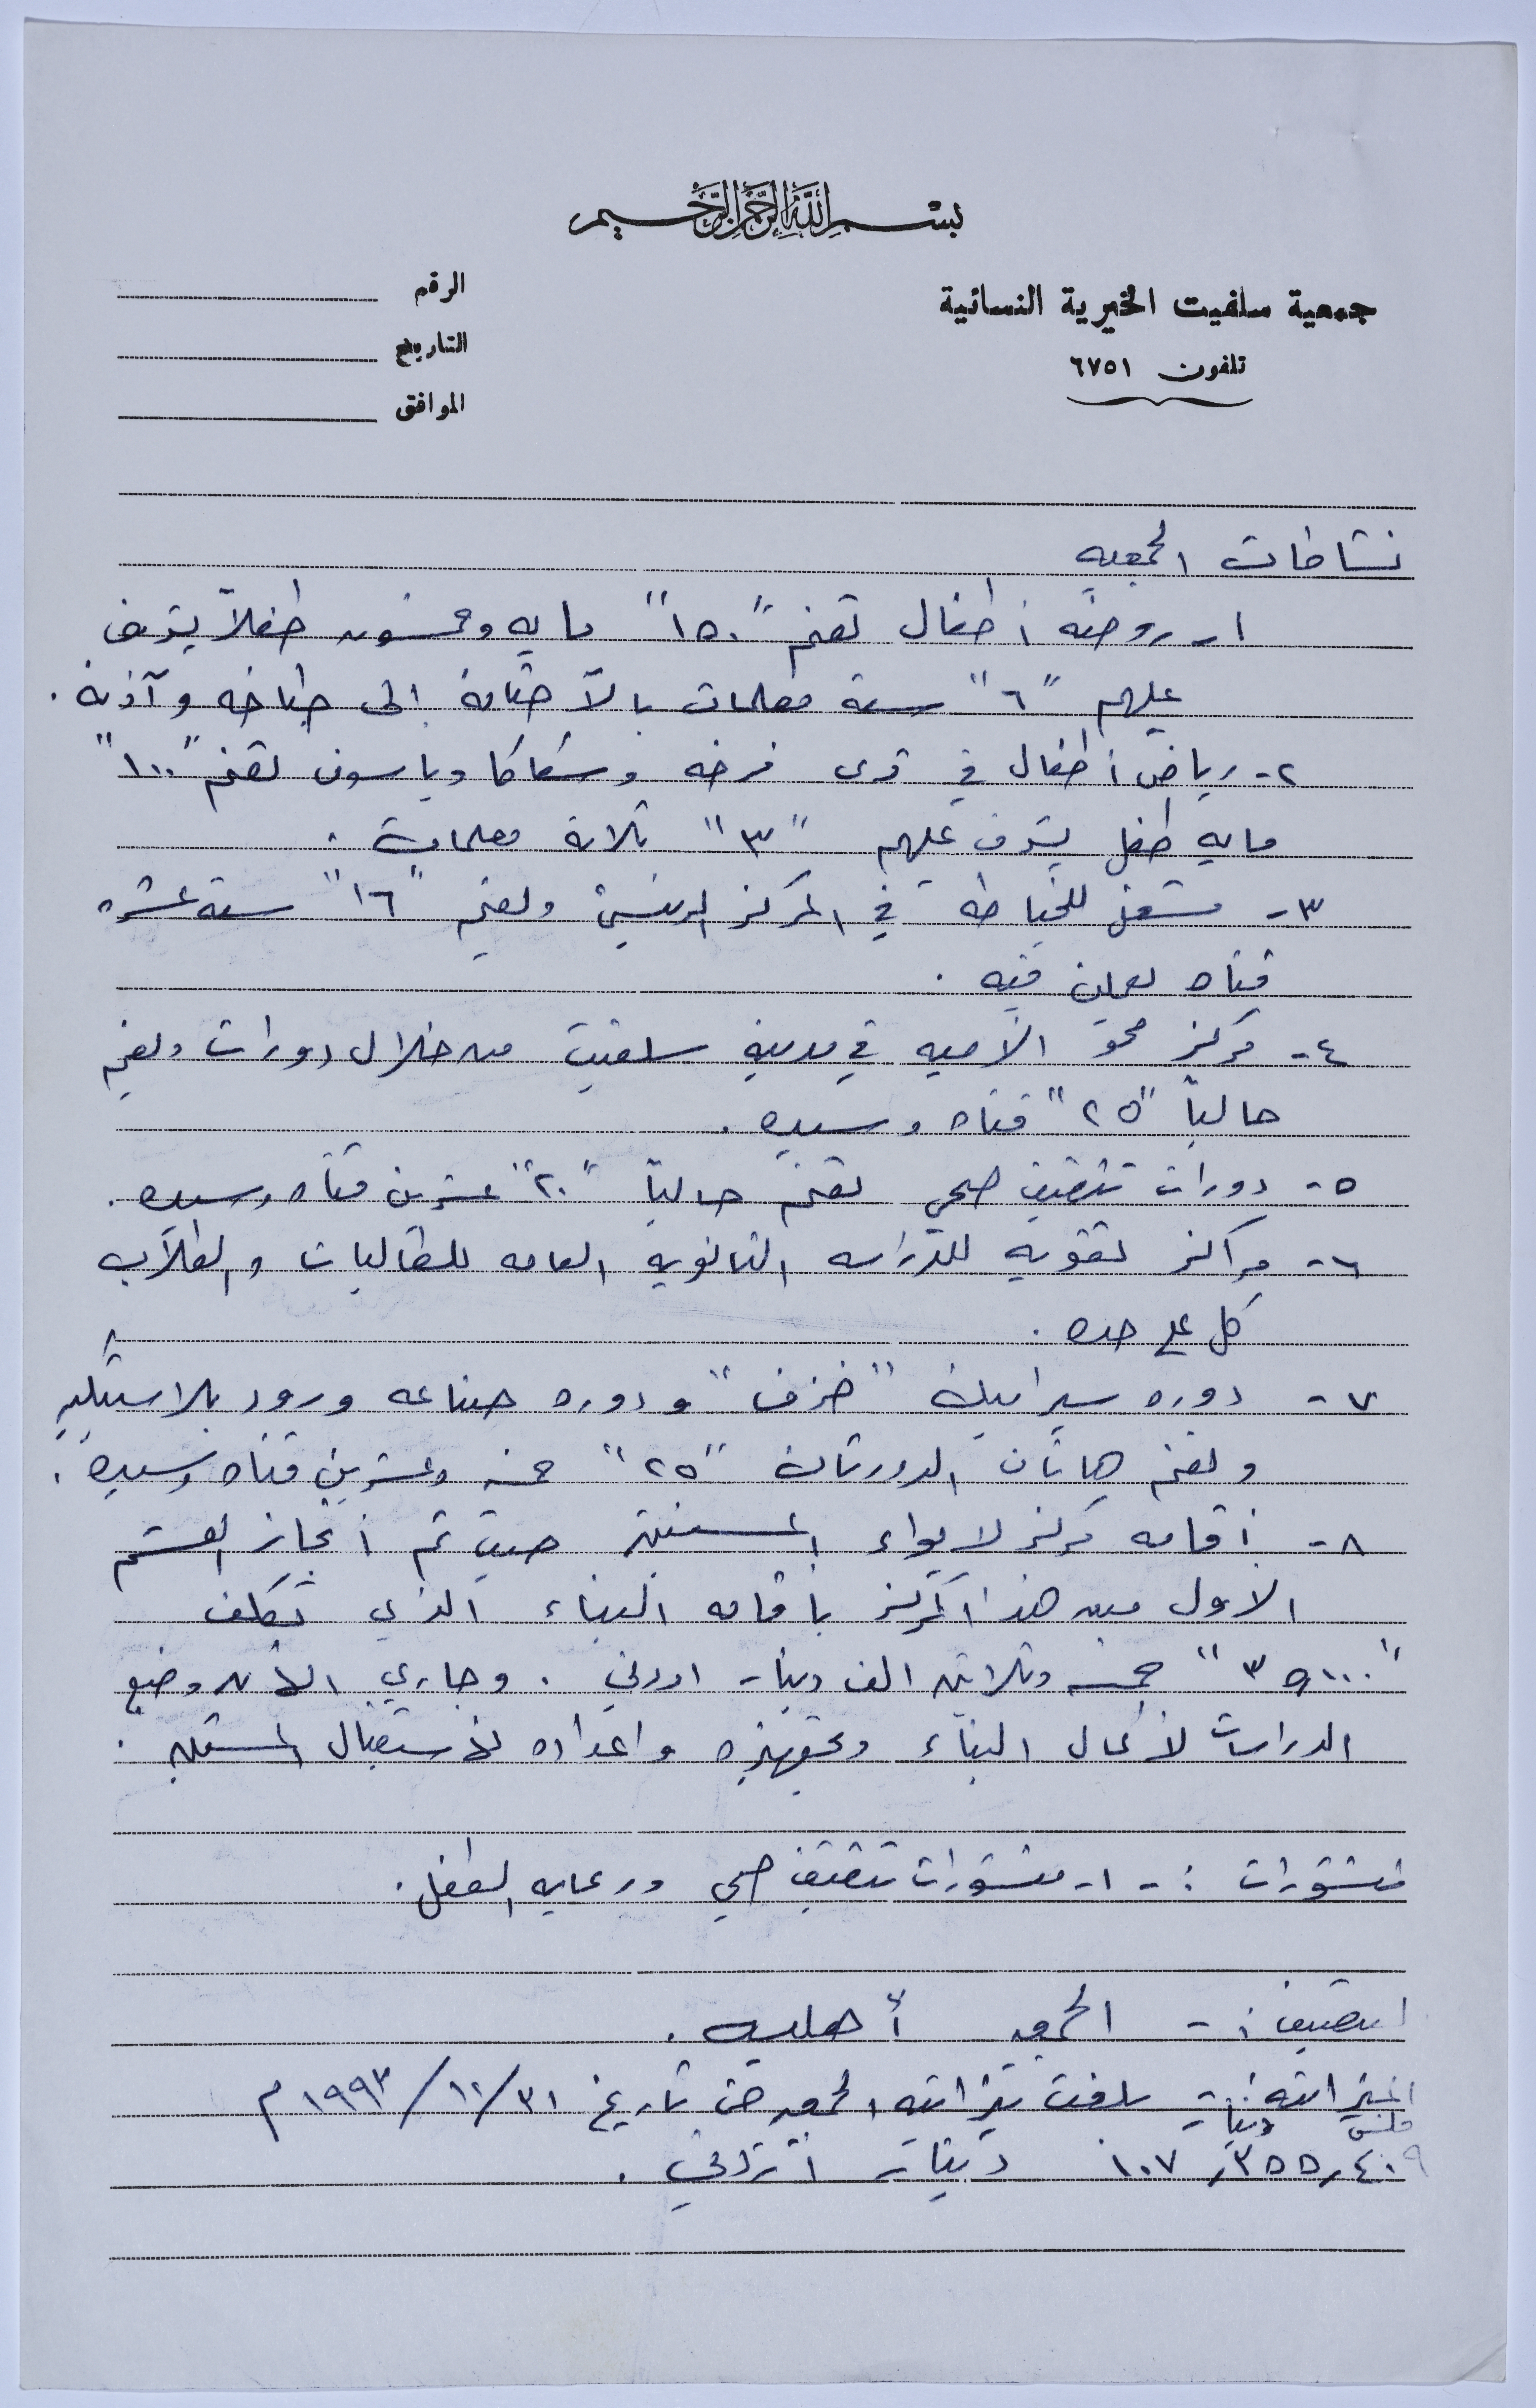 بسم الله الرحمن الرحيم
جمعية سلفيت الخيرية النسائية
تلفون ٦٧٥١
الرقم
التاريخ
الموافق
نشاطات الجمعيه
١- روضة أطفال تضم "١٥٠" مايه وخمسون طفلاً يشرف
عليهم "٦" ستة معلمات بالاضافة الى طباخه وآذنة.
٢- رياض أطفال في قرى فرخه وسكاكا وياسوف تضم "١٠٠"
مايه طفل يشرف عليهم "٣" ثلاثة معلمات.
٣- مشغل للخياطه في المركز الرئيسي ويضم "١٦" ستة عشره
فتاه يعملن فيه.
٤- مركز محو الأميه في مدينة سلفيت من خلال دورات ويضم
حالياً "٢٥" فتاه وسيده.
٥- دورات تثقيف صحي تضم حالياً "٢٠" عشرين فتاه وسيده.
٦- مراكز تقويه للدراسه الثانويه العامه للطالبات والطلاب
كل على حده.
٧- دوره سيراميك "خزف" ودوره صناعه ورود بلاستيكيه
وتضم هاتان الدورتان "٢٥" خمسه وعشرين فتاه وسيده.
٨- إقامه مركز لايواء المسنين حيث تم أنجاز القسم
الأول من هذا المركز بأقامه البناء الذي تكلف
"٣٥٠٠٠" خمسه وثلاثين الف دينار اردني. وجاري الآن وضع
الدراسات لأكمال البناء وتجهيزه واعداده لأستقبال المسنين.
منشورات :- ١- منشورات تثقيف صحي ورعايه الطفل.
التصنيف :- الجمعيه أهليه.
الميزانيه :- بلغت ميزانيه الجمعيه حتى تاريخ ٣١/١٠/١٩٩٣م
فلس دينار
١٠٧,٣٥٥,٤٠٩ دينار أردني.